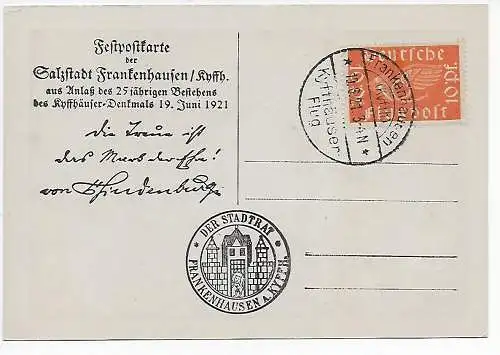 Festpostkarte
der
Salzstadt Frankenhausen/Kyffh.
aus Anlaß des 25jährigen Bestehens
des Kyffhäuser-Denkmals 19. Juni 1921
Die Treue ist
das Mark der Ehre!
von Hindenburg
Frankenhausen
Kyffhäuser
Flug
Deutsche
Flugpost
10 Pf.
DER STADTRAT
FRANKENHAUSEN A. KYFFH.